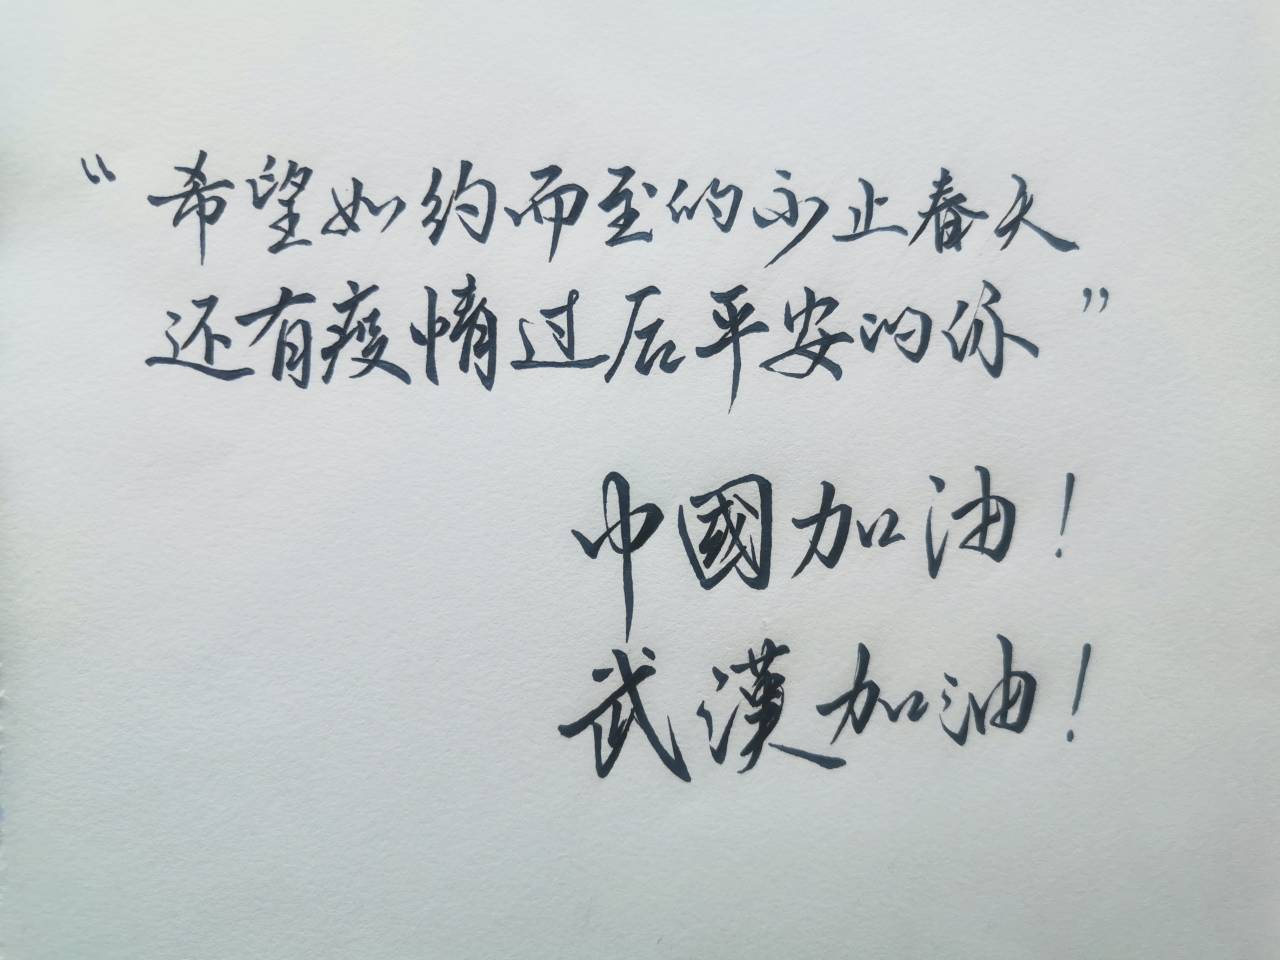 “希望如约而至的不止春天
还有疫情过后平安的你”
中國加油！
武漢加油！